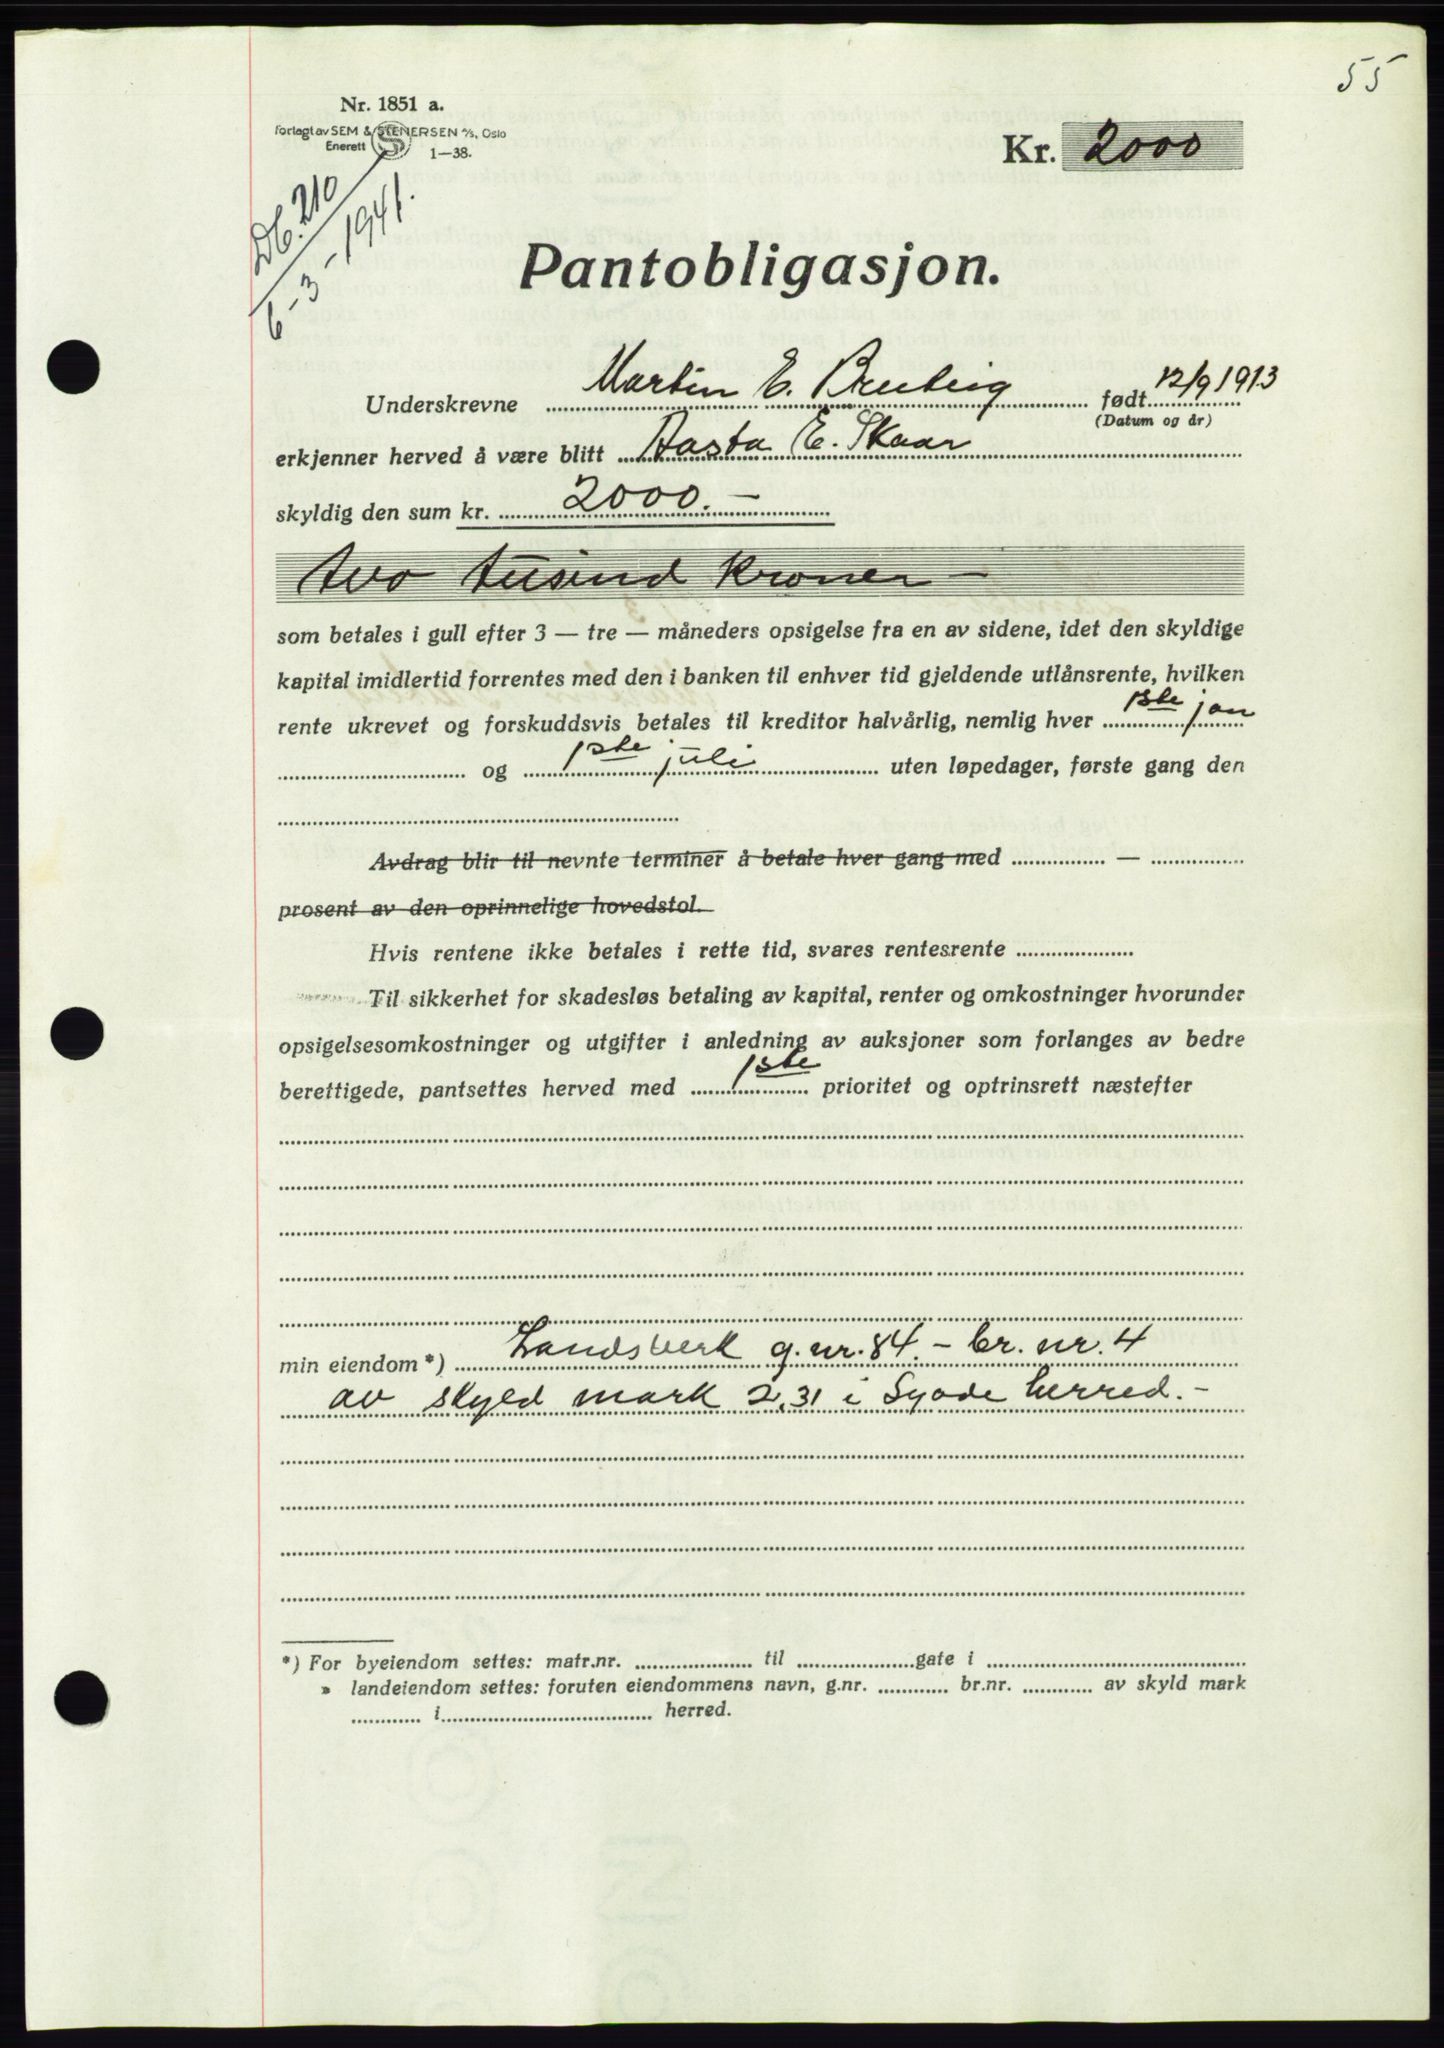 55
Nr. 1851 a.
Forlagt av SEM & STENERSEN A/S, Oslo
Enerett
1—38.
Kr. 2000
Db. 210
6-3-1941.
Pantobligasjon.
Underskrevne Martin E. Brubeig født 12/9 1913
(Datum og år)
erkjenner herved å være blitt Aasta E. Skaar
skyldig den sum kr. 2000.—
tvo tusind kroner —
som betales i gull efter 3 — tre — måneders opsigelse fra en av sidene, idet den skyldige
kapital imidlertid forrentes med den i banken til enhver tid gjeldende utlånsrente, hvilken
rente ukrevet og forskuddsvis betales til kreditor halvårlig, nemlig hver 1ste jan
og 1ste juli uten løpedager, første gang den
Avdrag blir til nevnte terminer å betale hver gang med —
prosent av den oprinnelige hovedstol.
Hvis rentene ikke betales i rette tid, svares rentesrente
Til sikkerhet for skadesløs betaling av kapital, renter og omkostninger hvorunder
opsigelsesomkostninger og utgifter i anledning av auksjoner som forlanges av bedre
berettigede, pantsettes herved med 1ste prioritet og optrinsrett næstefter
min eiendom*) Landsverk g.nr. 84. - br. nr. 4
av skyld mark 2,31 i Syvde herred. -
*) For byeiendom settes: matr.nr. til gate i
» landeiendom settes: foruten eiendommens navn, g.nr. br.nr. av skyld mark
i herred.